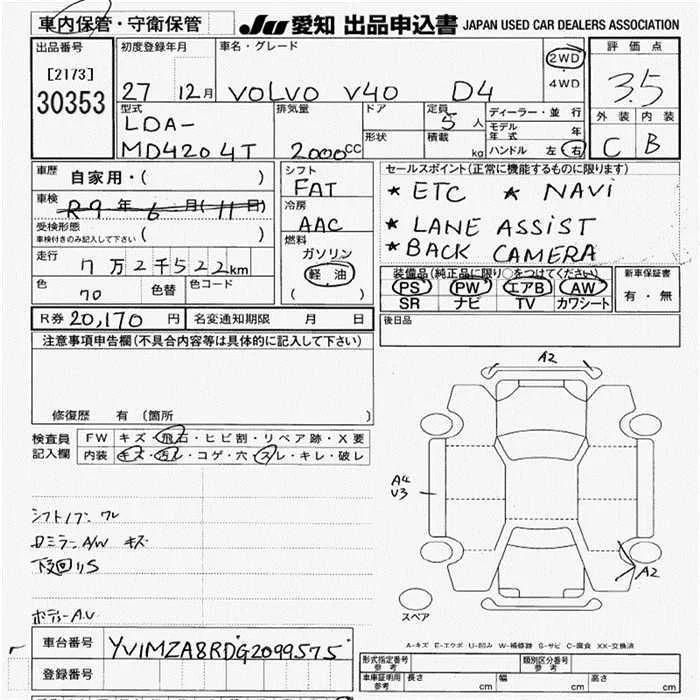 車内保管・守衛保管 JU 愛知 出品申込書 JAPAN USED CAR DEALERS ASSOCIATION
出品番号 [2173] 30353
初度登録年月 27 12月
車名・グレード VOLVO V40 D4
2WD 4WD
評価点 3.5
外装 内装
C B
型式 LDA-
MD4204T
排気量 2000cc
ドア
形状
定員 5人
積載 kg
ディーラー・並行
モデル年式 年
ハンドル 左 右
車歴 自家用・( )
車検 R9年 6月(11日)
受検形態 ( )
車検付きのみ記入して下さい
走行 7万2千522km
色 70 色替 色コード
シフト FAT
冷房 AAC
燃料
ガソリン
軽油
( )
セールスポイント(正常に機能するものに限ります)
★ ETC ★ NAVi
★ LANE ASSIST
★ BACK CAMERA
装備品(純正品に限り○をつけてください)
PS PW エアB AW
SR ナビ TV カワシート
新車保証書
有・無
R券 20,170 円 名変通知期限 月 日
後日品
注意事項申告欄(不具合内容等は具体的に記入して下さい)
修復歴 有 (箇所 )
検査員記入欄
FW キズ・飛石・ヒビ割・リペア跡・X要
内装 キズ・汚レ・コゲ・穴・スレ・キレ・破レ
シフトノブ ワレ
ロミラー A/W キズ
下廻りS
ボディーA.U
A2
A4
U3
A2
スペア
A-キズ E-エクボ U-凹み W-補修跡 S-サビ C-腐食 XX-交換済
車台番号 YV1MZA8RDG2099575
登録番号
形式指定番号 参考 類別区分番号 参考
車庫証明用 参考 長さ cm 幅 cm 高さ cm